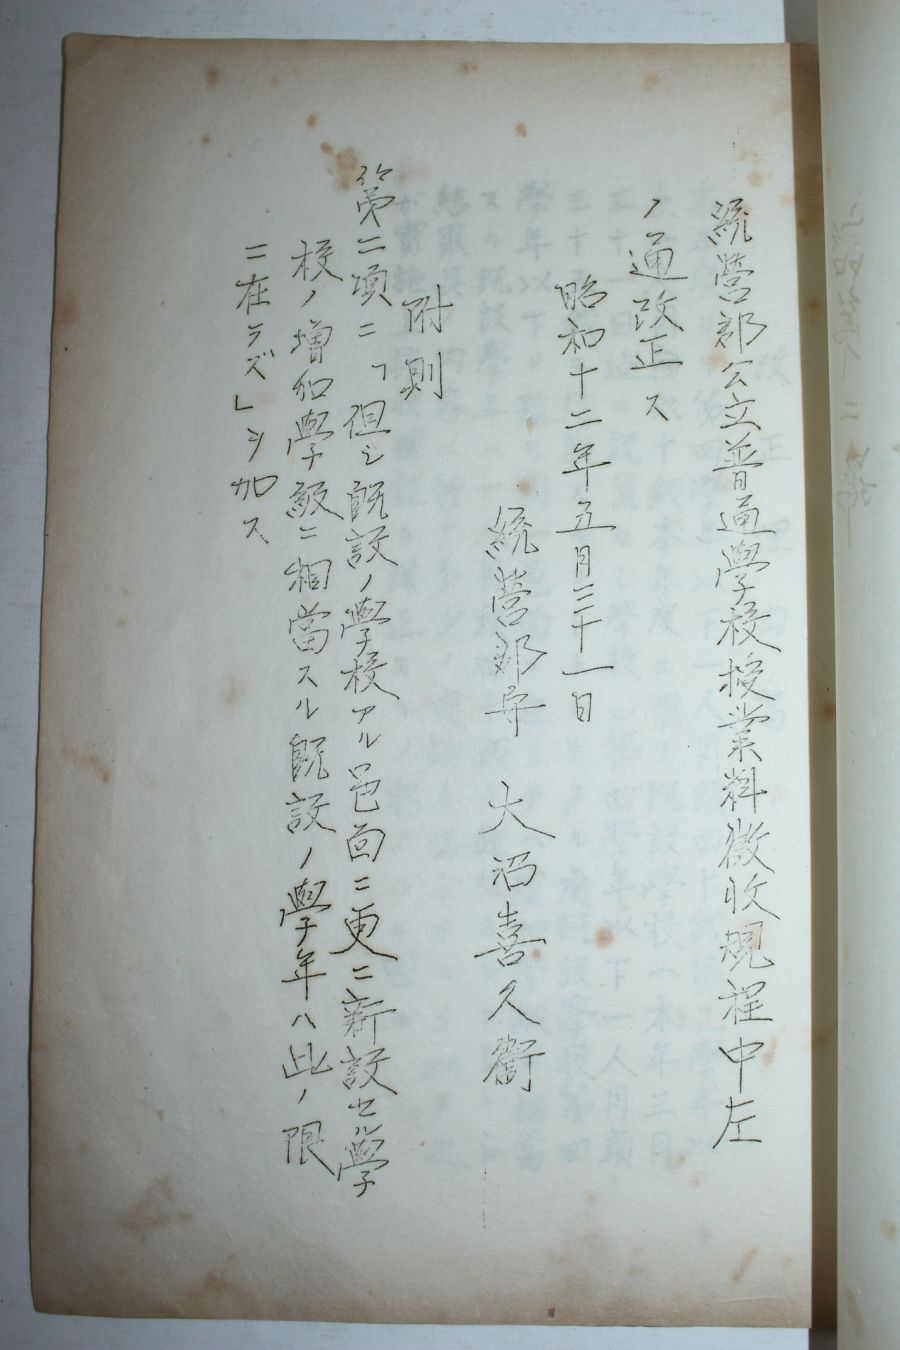 統営郡公立普通學校授業料徴收規程中左
ノ通改正ス
昭和十二年五月三十一日
統営郡守　大沼喜久衞
附則
第二項ニ「但シ既設ノ學校アル邑面ニ更ニ新設セル學
校ノ増加學級ニ相當スル既設ノ學年ハ此ノ限
ニ在ラズ」ヲ加ス